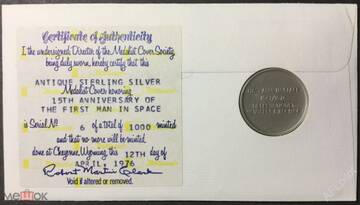 Certificate of Authenticity
I the undersigned Director of the Medalist Cover Society
being duly sworn, hereby certify that this
ANTIQUE STERLING SILVER
Medalist Cover honoring
15TH ANNIVERSARY OF
THE FIRST MAN IN SPACE
is Serial No. 6 of a total of 1000 minted
and that no more will be minted
done at Cheyenne, Wyoming, this 12TH day of
APRIL, 1976
Robert Martin Clark
Void if altered or removed.
МЕШОК